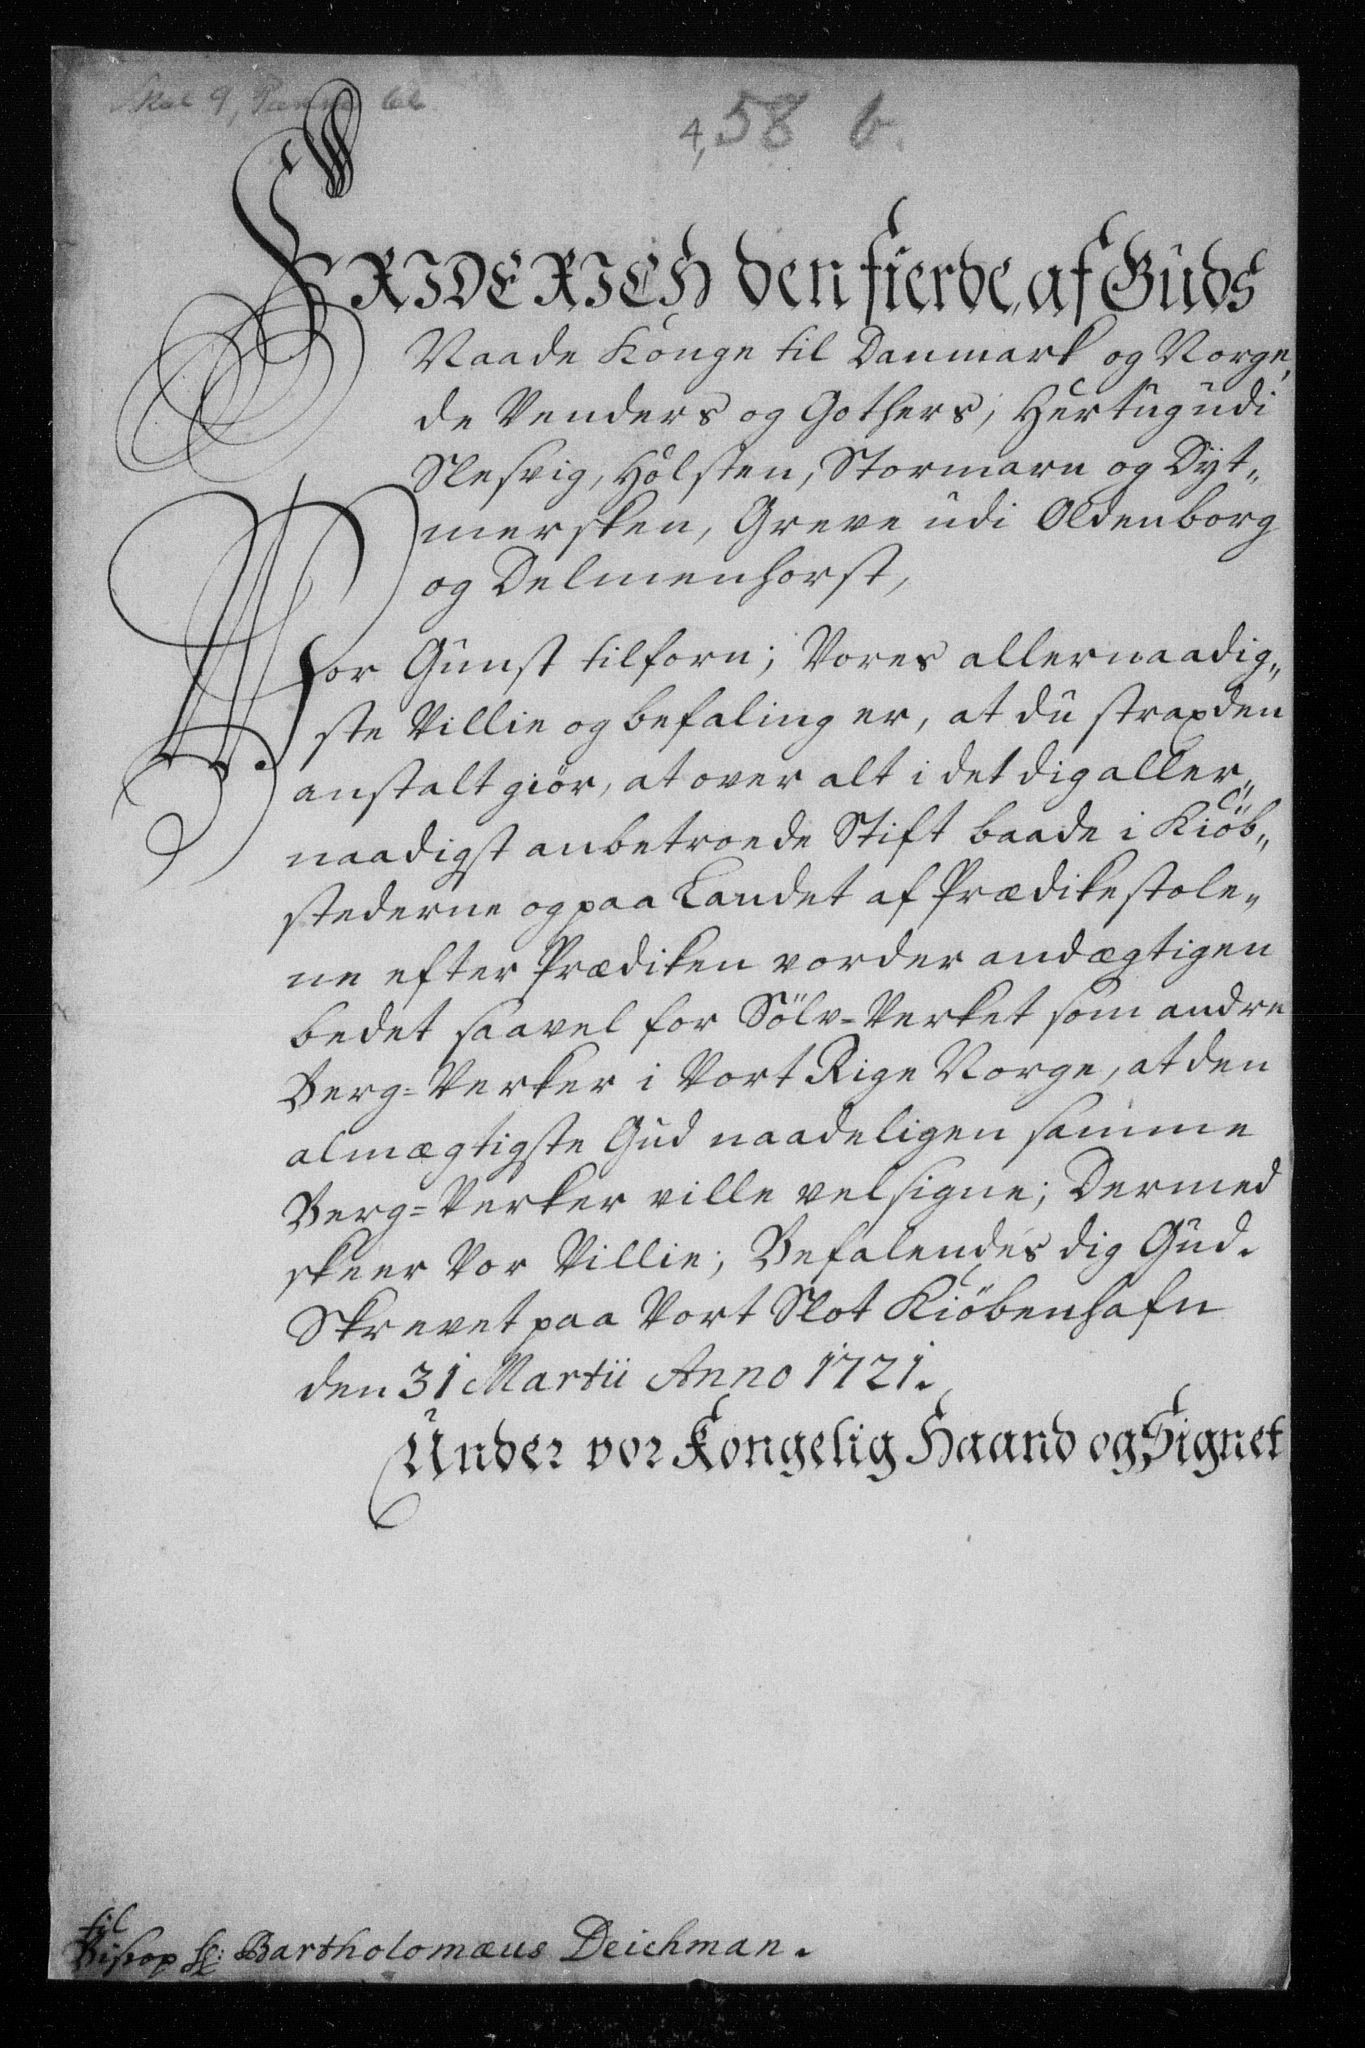 4, 58 b.
FRIDERICH den fierde, af Guds
Naade Konge til Danmark og Norge,
de Venders og Gothers, Hertug udi
Slesvig, Holsten, Stormarn og Dyt„
mersken, Greve udi Oldenborg
og Delmenhorst,
Vor Gunst tilforn; Vores allernaadig„
ste Villie og befaling er, at du strax den
anstalt giør, at over alt i det dig aller„
naadigst anbetroede Stift baade i Kiöb„
stederne og paa Landet af Prædikestole„
ne efter Prædiken vorder andægtigen
bedet saavel for Sölv=Verket som andre
Berg=Verker i Vort Rige Norge, at den
almægtigste Gud naadeligen samme
Berg=Verker ville velsigne; Dermed
skeer Vor Villie; Befalendes dig Gud.
Skrevet paa Vort Slot Kiöbenhafn
den 31 Martii Anno 1721.
Under vor Kongelig Haand og Signet
til
Biskop Hr: Bartholomæus Deichman.